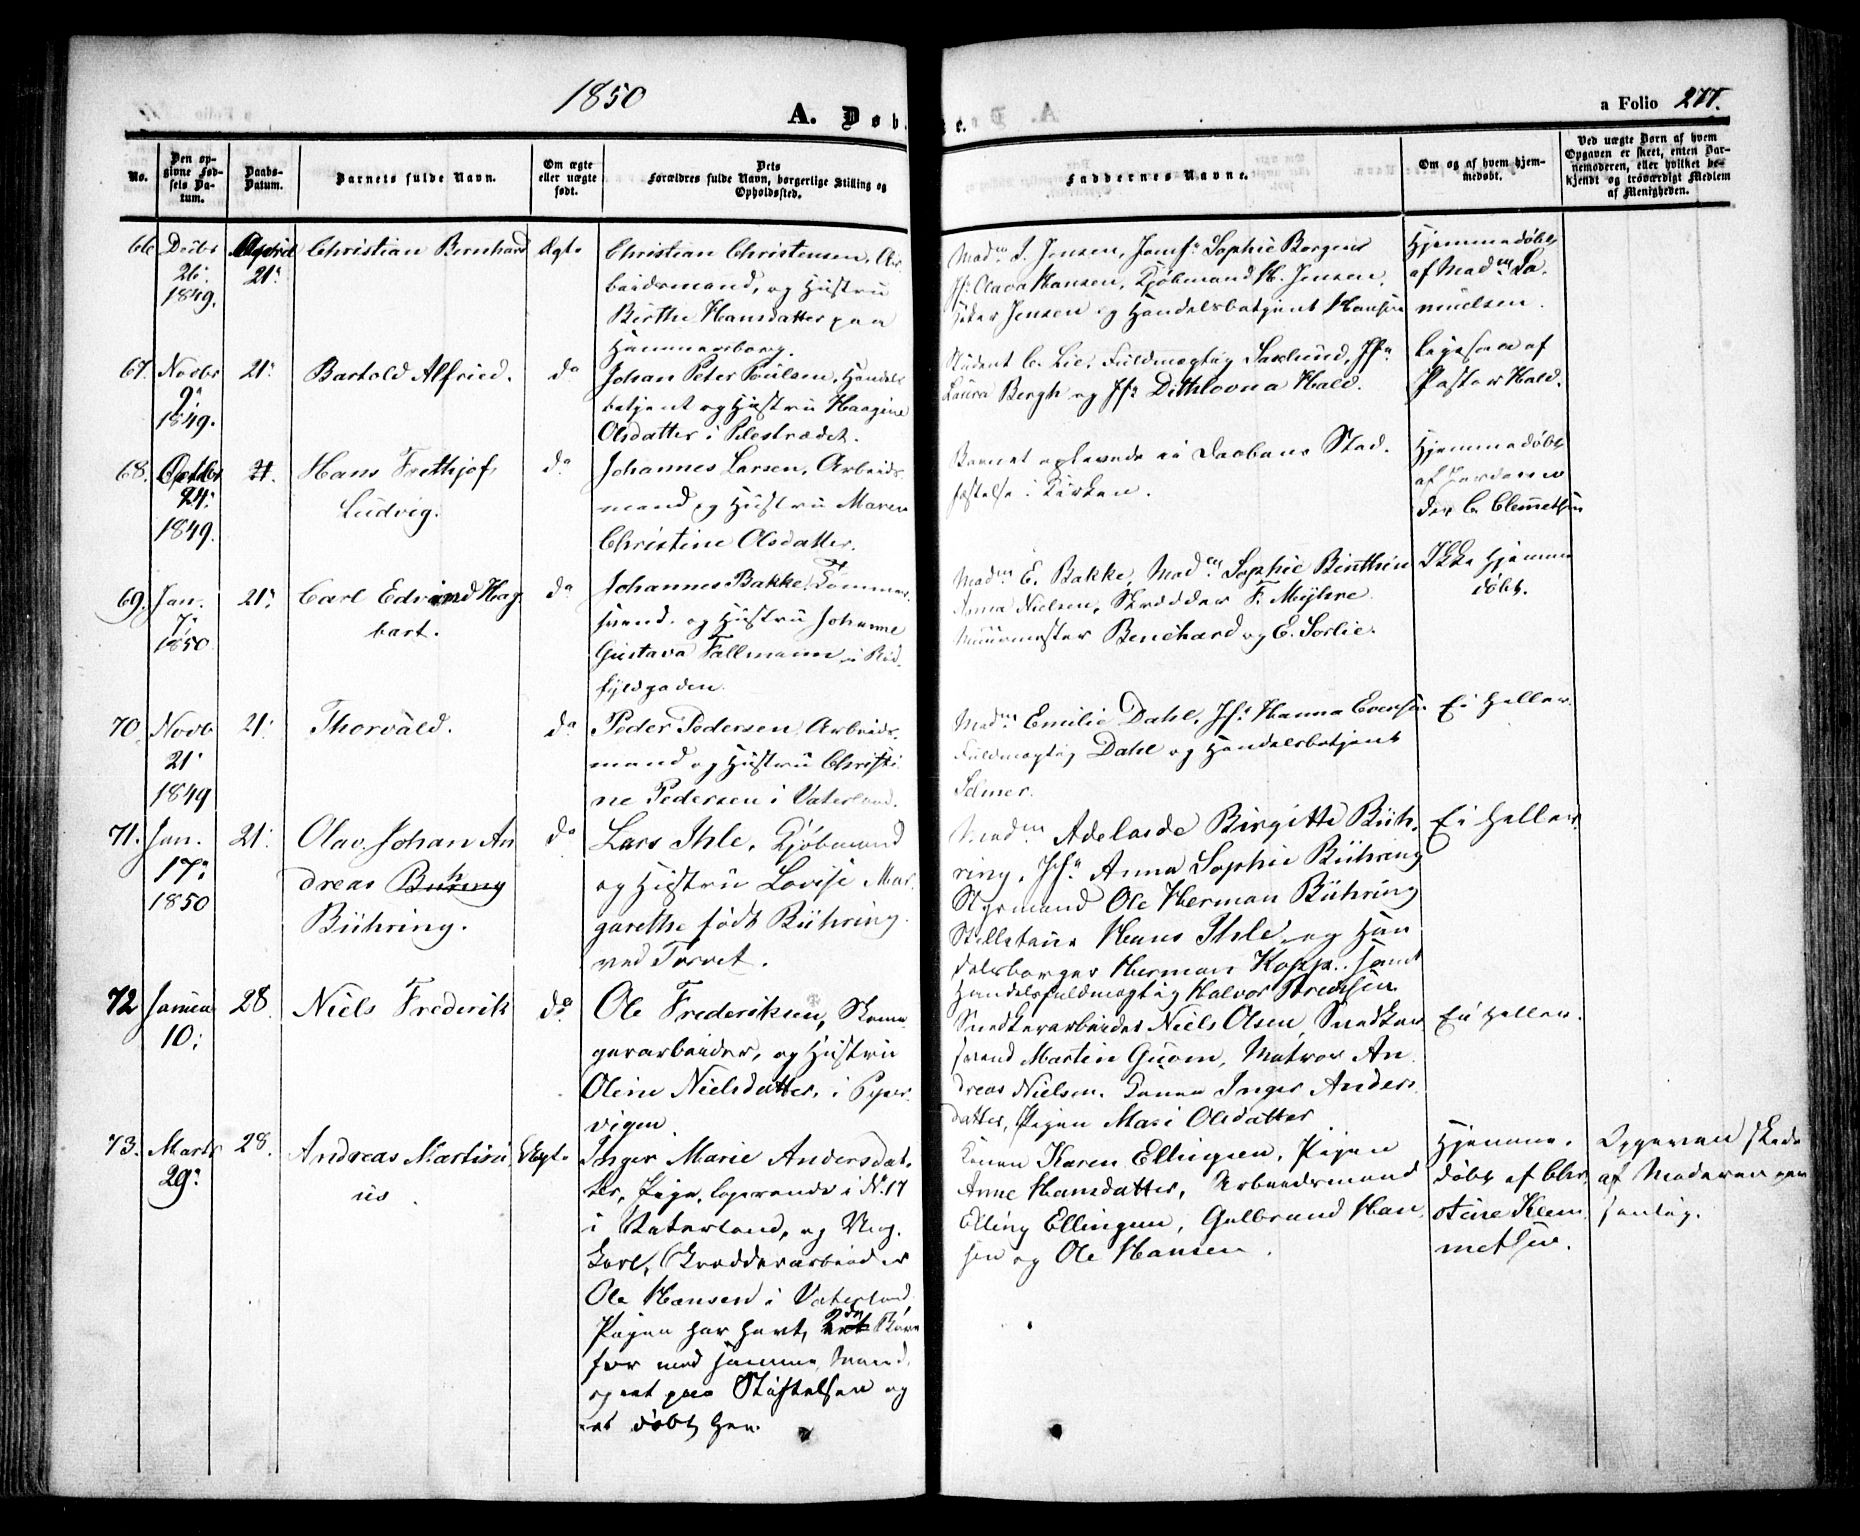 1850
A. Døbte.
a Folio 277.
No.
Den op-
givne Fød-
sels Da-
tum.
Daabs-
Datum.
Barnets fulde Navn.
Om ægte
eller uægte
født.
Dets
Forældres fulde Navn, borgerlige Stilling og
Opholdssted.
Faddernes Navne.
Om og af hvem hjem-
medøbt.
Ved uægte Børn af hvem
Opgaven er skeet, enten Bar-
nemoderen, eller hvilket be-
kjendt og troværdigt Medlem
af Menigheden.
66 Decbr
26:
1849.
April
21:
Christian Bernhard
Ægte
Christian Christensen, Ar-
beidsmand, og Hustru
Birthe Hansdatter paa
Hammersborg.
Madm J. Jensen, Jomfr Sophie Borgens
Jfr Olava Hansen, Kjøbmand H. Jensen,
Peder Jensen og Handelsbetjent Hansen
Hjemmedøbt
af Madm Da-
nielsen.
67. Novbr
9:
1849.
21:
Bartold Alfried.
do
Johan Peter Poulsen, Handels
betjent og Hustru Haagine
Olsdatter i Pilestrædet.
Student C. Lie, Fuldmægtig Saxlund, Jfr
Laura Bergh og Jfr Dithlovna Hald.
Ligesaa af
Pastor Hald.
68. Octbr
24:
1849.
21.
Hans Frethjof
Ludvig.
do
Johannes Larsen, Arbeids
mand og Hustru Maren
Christine Olsdatter.
Barnet oplevede ei Daabens Stad-
fæstelse i Kirken.
Hjemmedøbt
af Jordemo
der C. Clemetsen
69. Jan.
7:
1850
21:
Carl Edvard Hag-
bart.
do
Johannes Bakke, Tømmer-
svend og Hustru Johanne
Gustava Fallmann i Rød-
fyldgaden.
Madm E. Bakke, Madm Sophie Binthin
Anna Nielsen, Skrædder F. Mÿhre
Muurmester Benéhard og E. Sorlie.
Ikke hjemme
døbt.
70. Novb
21:
1849
21:
Thorvald.
do
Peder Pedersen Arbeids-
mand og Hustru Christi-
ne Pedersen i Vaterland.
Madm Emilie Dahl, Jfr Hanna Evensen
Fuldmægtig Dahl og Handelsbetjent
Selmer.
Ei heller.
71. Jan.
17:
1850
21:
Olav Johan An
dreas Buhring
Bühring.
do
Lars Ihle, Kjøbmand
og Hustru Lovise Mar-
garethe født Bühring
ved Torvet.
Madm Adelaide Birgitte Büh-
ring, Jfr Anna Sophie Bühring
Styrmand Ole Herman Bühring
Hans Ihle og Han
delsborger Herman Kopp, samt
Handelsfuldmægtig Halvor
Ei heller.
72 Januar
10:
28.
Niels Frederik
do
Ole Frederiksen, Skoma
gerarbeider, og Hustru
Oline Nielsdatter, i Piper-
vigen.
Snedkerarbeider Niels Olsen, Snedker
svend Martin Guom, Matros An-
dreas Nielsen, Konen Inger Anders
datter, Pigen Mari Olsdatter
Ei heller.
73. Marts
29:
28.
Andreas Martini
us.
Uægte
Inger Marie Andersdat-
ter, Pige, logerende i No 17
i Vaterland, og Ung-
karl, Skrædderarbeider
Ole Hansen i Vaterland.
Pigen har havt 2de Børn
før med samme Mand,
og et paa Stiftelsen og
et døbt her.
Konen Karen Ellingsen, Pigen
Anne Hansdatter, Arbeidsmand
Elling Ellingsen, Gulbrand Han-
sen og Ole Hansen.
Hjemme-
døbt af Chri
stine Klem
metsen.
Opgaven skede
af Moderen per
sonlig.